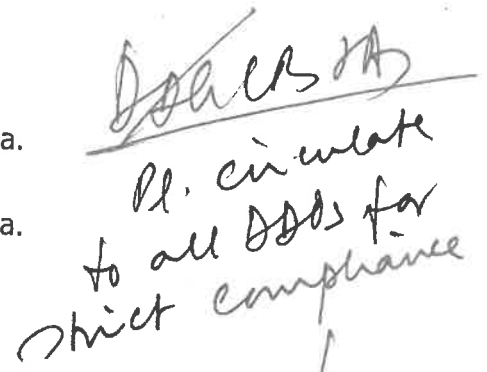 a.
Pl. circulate
a.
to all DDOs for
strict compliance